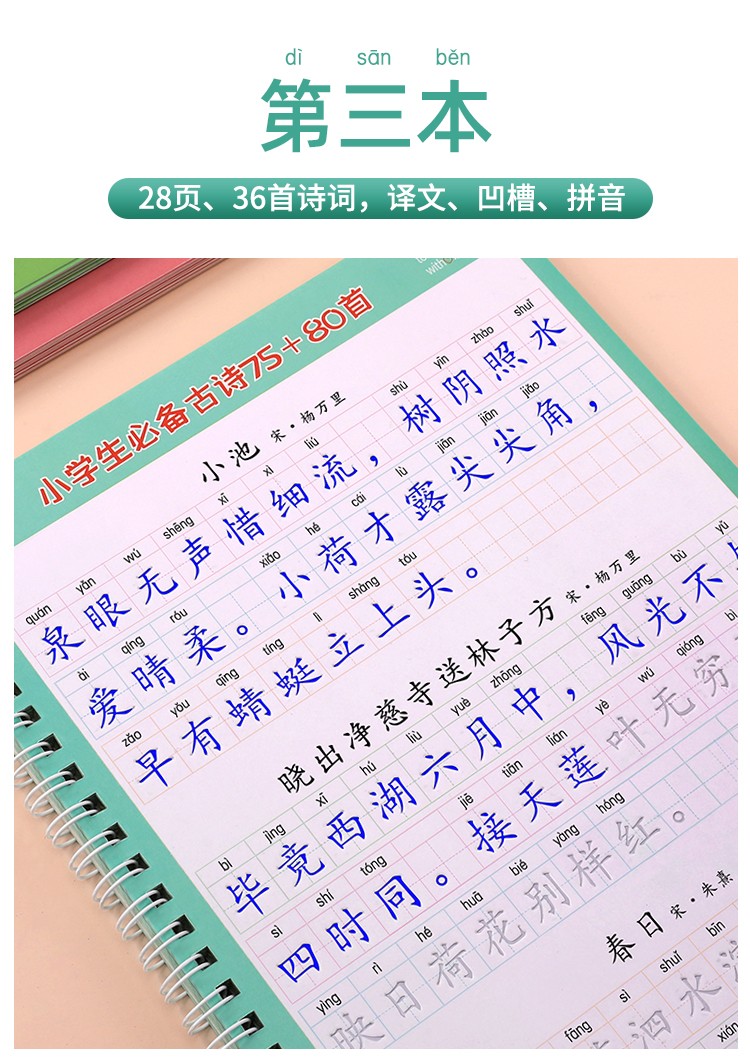 dì sān běn
第三本
28页、36首诗词，译文、凹槽、拼音
with
小学生必备古诗75+80首
小池 宋·杨万里
quán yǎn wú shēng xī xì liú shù yīn zhào shuǐ
泉眼无声惜细流，树阴照水
ài qíng róu xiǎo hé cái lù jiān jiān jiǎo
爱晴柔。小荷才露尖尖角，
zǎo yǒu qīng tíng lì shàng tóu
早有蜻蜓立上头。
晓出净慈寺送林子方 宋·杨万里
bì jìng xī hú liù yuè zhōng fēng guāng bù yǔ
毕竟西湖六月中，风光不
sì shí tóng jiē tiān lián yè wú qióng bì
四时同。接天莲叶无穷
yìng rì hé huā bié yàng hóng
映日荷花别样红。
春日 宋·朱熹
fāng sì shuǐ bīn
泗水滨